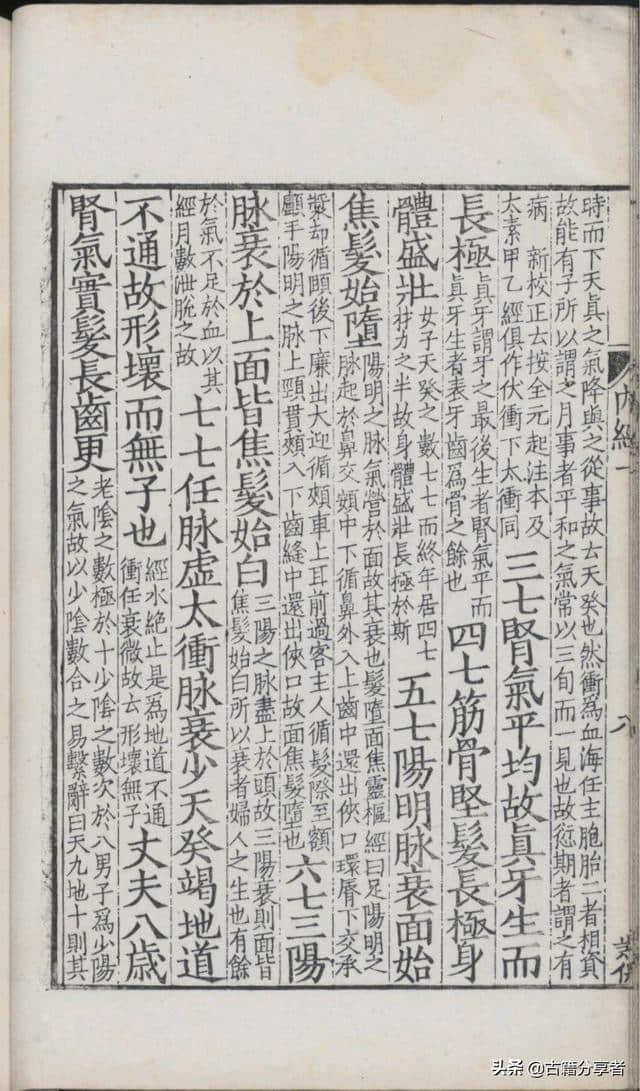 内經一
八
時而下天眞之氣降與之從事故云天癸也然衝爲血海任主胞胎二者相資
故能有子所以謂之月事者平和之氣常以三旬而一見也故愆期者謂之有
病 新校正云按全元起注本及
太素甲乙經俱作伏衝下太衝同
三七腎氣平均故眞牙生而
長極
眞牙謂牙之最後生者腎氣平而
眞牙生者表牙齒爲骨之餘也
四七筋骨堅髮長極身
體盛壯
女子天癸之數七七而終年居四七
材力之半故身體盛壯長極於斯
五七陽明脉衰面始
焦髮始墮
陽明之脉氣營於面故其衰也髮墮面焦靈樞經曰足陽明之
脉起於鼻交頞中下循鼻外入上齒中還出俠口環脣下交承
漿却循頤後下廉出大迎循頰車上耳前過客主人循髮際至額
顱手陽明之脉上頸貫頰入下齒縫中還出俠口故面焦髮墮也
六七三陽
脉衰於上面皆焦髮始白
三陽之脉盡上於頭故三陽衰則面皆
焦髮始白所以衰者婦人之生也有餘
於氣不足於血以其
經月數泄脫之故
七七任脉虛太衝脉衰少天癸竭地道
不通故形壞而無子也
經水絶止是爲地道不通
衝任衰微故云形壞無子
丈夫八歲
腎氣實髮長齒更
老陰之數極於十少陰之數次於八男子爲少陽
之氣故以少陰數合之易繫辭曰天九地十則其
头条 @古籍分享者